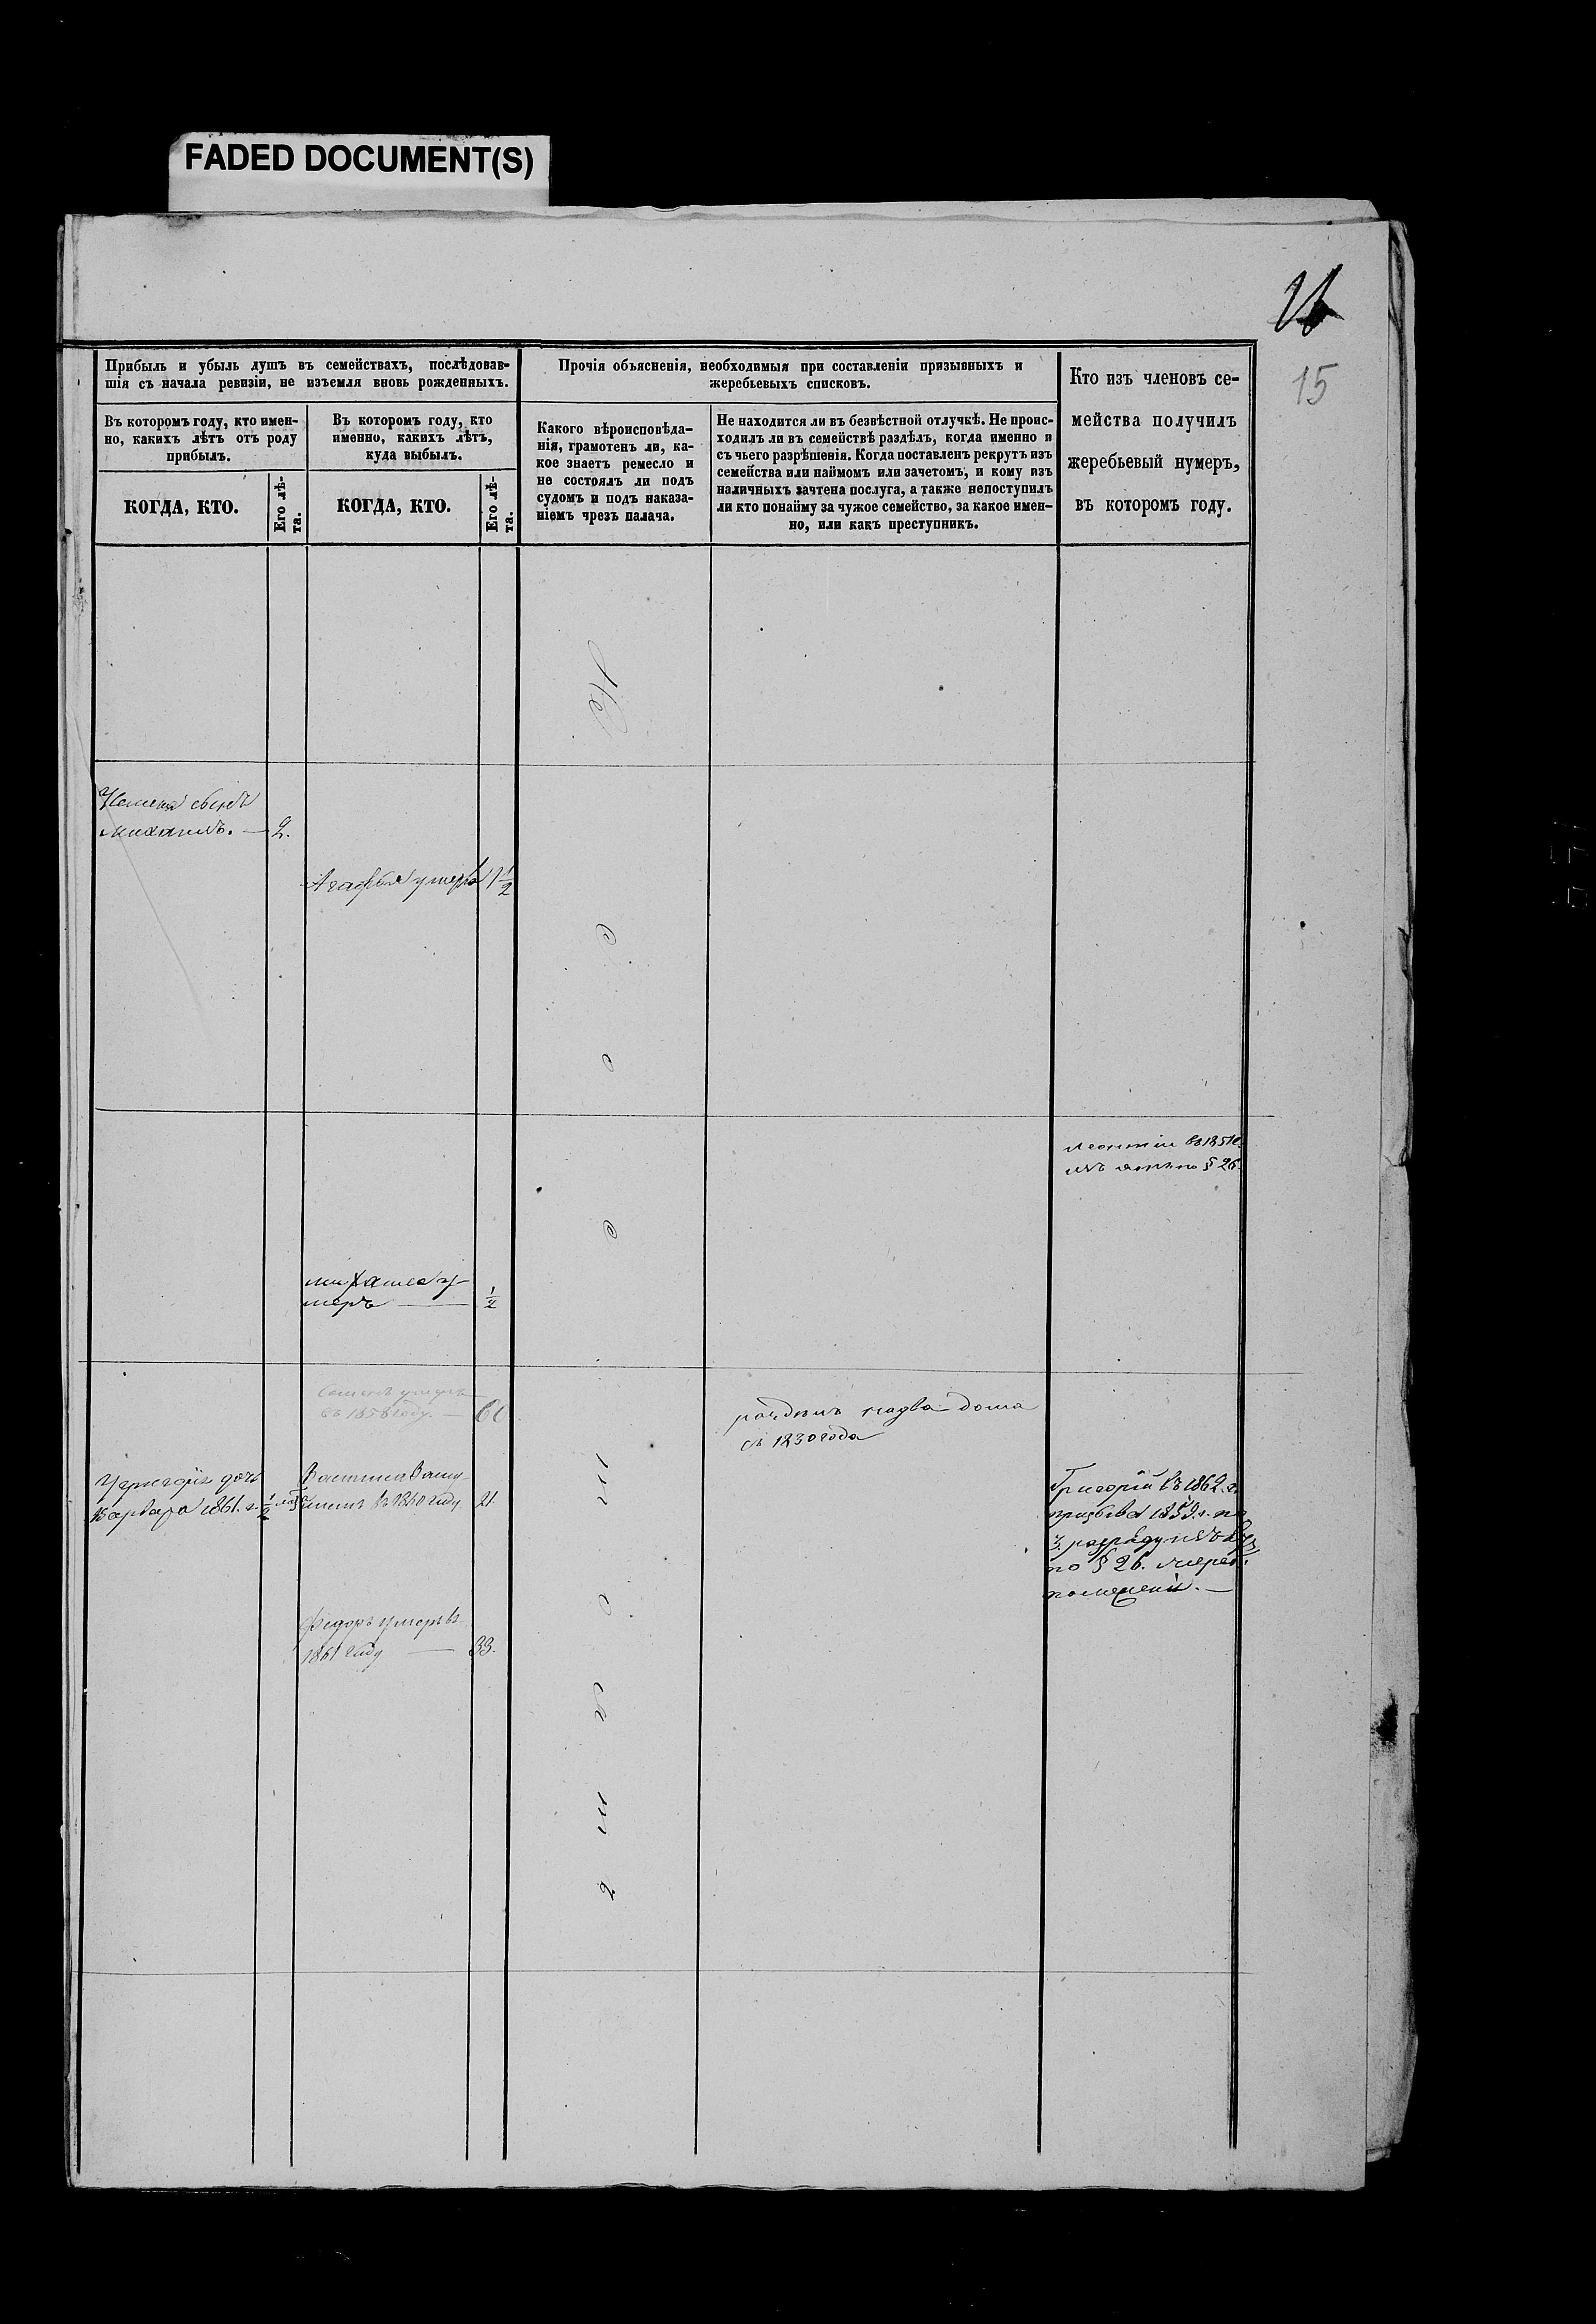 FADED DOCUMENT(S)
15
Прибыль и убыль душъ въ семействахъ, послѣдовав-
шія съ начала ревизіи, не изъемля вновь рожденныхъ.
Въ которомъ году, кто имен-
но, какихъ лѣтъ отъ роду
прибылъ.
КОГДА, КТО.
Его лѣ-
та.
Въ которомъ году, кто
именно, какихъ лѣтъ,
куда выбылъ.
КОГДА, КТО.
Его лѣ-
та.
Прочія объясненія, необходимыя при составленіи призывныхъ и
жеребьевыхъ списковъ.
Какого вѣроисповѣда-
нія, грамотенъ ли, ка-
кое знаетъ ремесло и
не состоялъ ли подъ
судомъ и подъ наказа-
ніемъ чрезъ палача.
Не находится ли въ безвѣстной отлучкѣ. Не проис-
ходилъ ли въ семействѣ раздѣлъ, когда именно и
съ чьего разрѣшенія. Когда поставленъ рекрутъ изъ
семейства или наймомъ или зачетомъ, и кому изъ
наличныхъ зачтена послуга, а также непоступилъ
ли кто понайму за чужое семейство, за какое имен-
но, или какъ преступникъ.
Кто изъ членовъ се-
мейства получилъ
жеребьевый нумеръ,
въ которомъ году.
сынъ
михаилъ. — 2.
Агафья умерла 1 1/2
Леонтій въ
§ 26.
михаилъ у-
меръ — 1/2
въ 1858 году. — 60
раздѣлъ на два дома
съ 1830 года
дочь
1861. г. 1/2
въ 1860 году 21.
Григорій въ 1862. г.
призыва 1859. г. по
3. разряду
по § 26.
Федоръ умеръ въ
1861 году — 33.